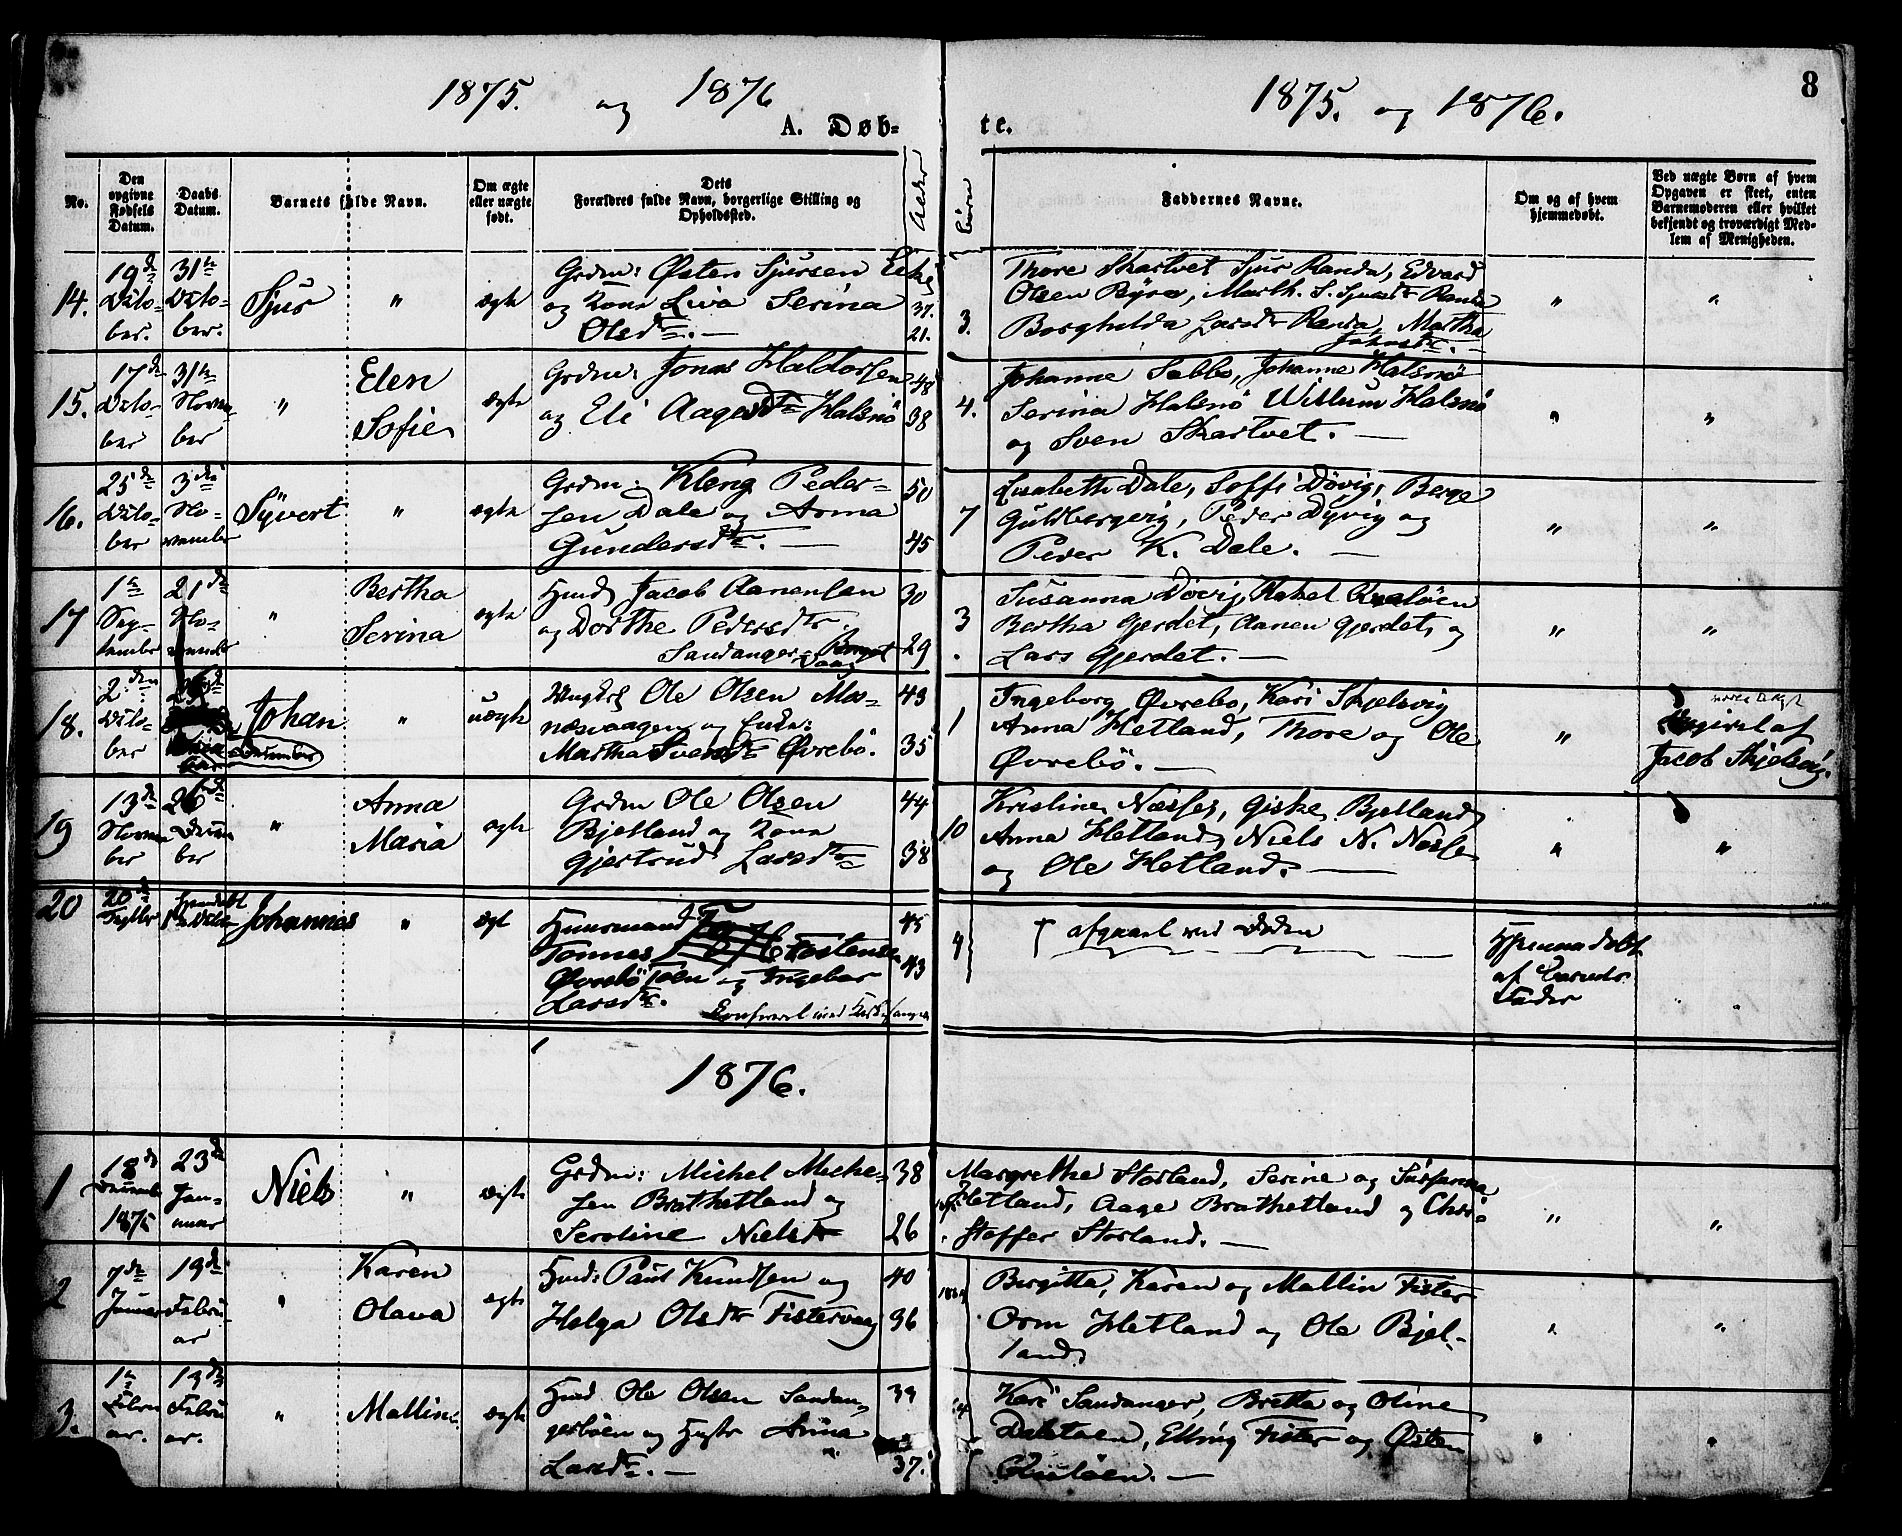 1875. og 1876
1875. og 1876.
8
A. Døb-
te.
No.
Den opgivne Fødsels Datum.
Daabs Datum.
Barnets fulde Navn.
Om ægte eller uægte født.
Dets
Forældres fulde Navn, borgerlige Stilling og
Opholdssted.
Alder
Faddernes Navne.
Om og af hvem
hjemmedøbt.
Ved uægte Børn af hvem
Opgaven er skeet, enten
Barnemoderen eller hvilket
bekjendt og troværdigt Med-
lem af Menigheden.
14.
19de
Octo-
ber.
31te
Octo-
ber.
Sjur
"
ægte
Grdm: Østen Sjursen
og Kone Liva Serina
Olsdtr. —
37.
21.
3.
Thore Skartvet Sjur Randa, Edvard
Olsen Byre, Marth. S. Randa
Borghilda Larsdtr Randa, Martha
"
"
15.
17de
Octo-
ber
31te
ber
"
Elen
Sofie
ægte
Grdm: Jonas Haldorsen
og Eli Aagesdtr Halsnö
48
38
4.
Johanne Sabbo, Johanne Halsnö
Serina Halsnö Willum Halsnö
og Sven Skartvet. —
"
"
16.
25de
Octo-
ber
3die
No-
vember
Syvert
"
ægte
Grdm: Kleng Peder-
sen Dale og Anna
Gundersdtr. —
50
45
7
Lisabeth Dale, Soffi Dövig, Berge
Guldbergvig, Peder Dyvig og
Peder K. Dale. —
"
"
17
1te
Sep-
tember
21de
No-
vember
"
Bertha
Serina
ægte
Husmd Jacob Aanensen
og Dorthe Pedersdtr.
Sandanger
30
29
3
Susanna Dövig, Rakel
Bertha Gjerdet, Aanen Gjerdet, og
Lars Gjerdet. —
"
"
18.
2den
Octo-
ber
26de
December
Johan
"
uægte
Ungkl Ole Olsen Mos-
næsvaagen og Enke:
Martha Svensdtr Øvrebö.
43
35
1
Ingeborg Øvrebo, Kari Skjelsvig
Anna Hetland, Thore og Ole
Øvrebö. —
"
Opgivet af
Jacob Skjelsvig.
19
13de
Novem
ber
26de
Decem
ber
"
Anna
Maria
ægte
Grdm Ole Olsen
Bjetland og Kone
Gjertrud Larsdtr
44
38
10
Kristine Næsse, Giske Bjelland
Anna Hetland, Niels N. Næsse
og Ole Hetland. —
"
"
20
20de
Septbr
Johannes
"
ægt
Huusmand
Tonnes Tostensen
Øvrebö og Ingebor
Larsdtr.
45
43
4
† afgaaet ved Döden
Hjemmedøbt
af Barnets
Fader
"
1876.
1
18de
Decemb
1875
23de
Jan-
uar
Niels
"
ægte
Grdm: Michel Miche-
sen Brathetland og
Seroline Nielsdtr
38
26
Margrethe Storland, Serine og Susanna
Hetland, Aage Brathetland og Chri-
stoffer Storland. —
"
"
2
7de
Januar
19de
Febru-
ar
"
Karen
Olava
ægte
Husmd: Paul Knudsen og
Helga Olsdtr Fistervaag
40
36
Birgitta, Karen og Mallin Fister
Orm Hetland og Ole Bjel-
land.
"
"
3.
1te
Febru
ar.
13de
Febru
ar.
"
Malline
ægte
Husmd Ole Olsen Sandan-
gerböen og Hustr Anna
Larsdtr. —
39
37.
Kari Sandanger, Britta og Oline
Elling Fister og Østen
"
"